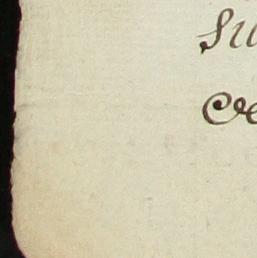 su
ce